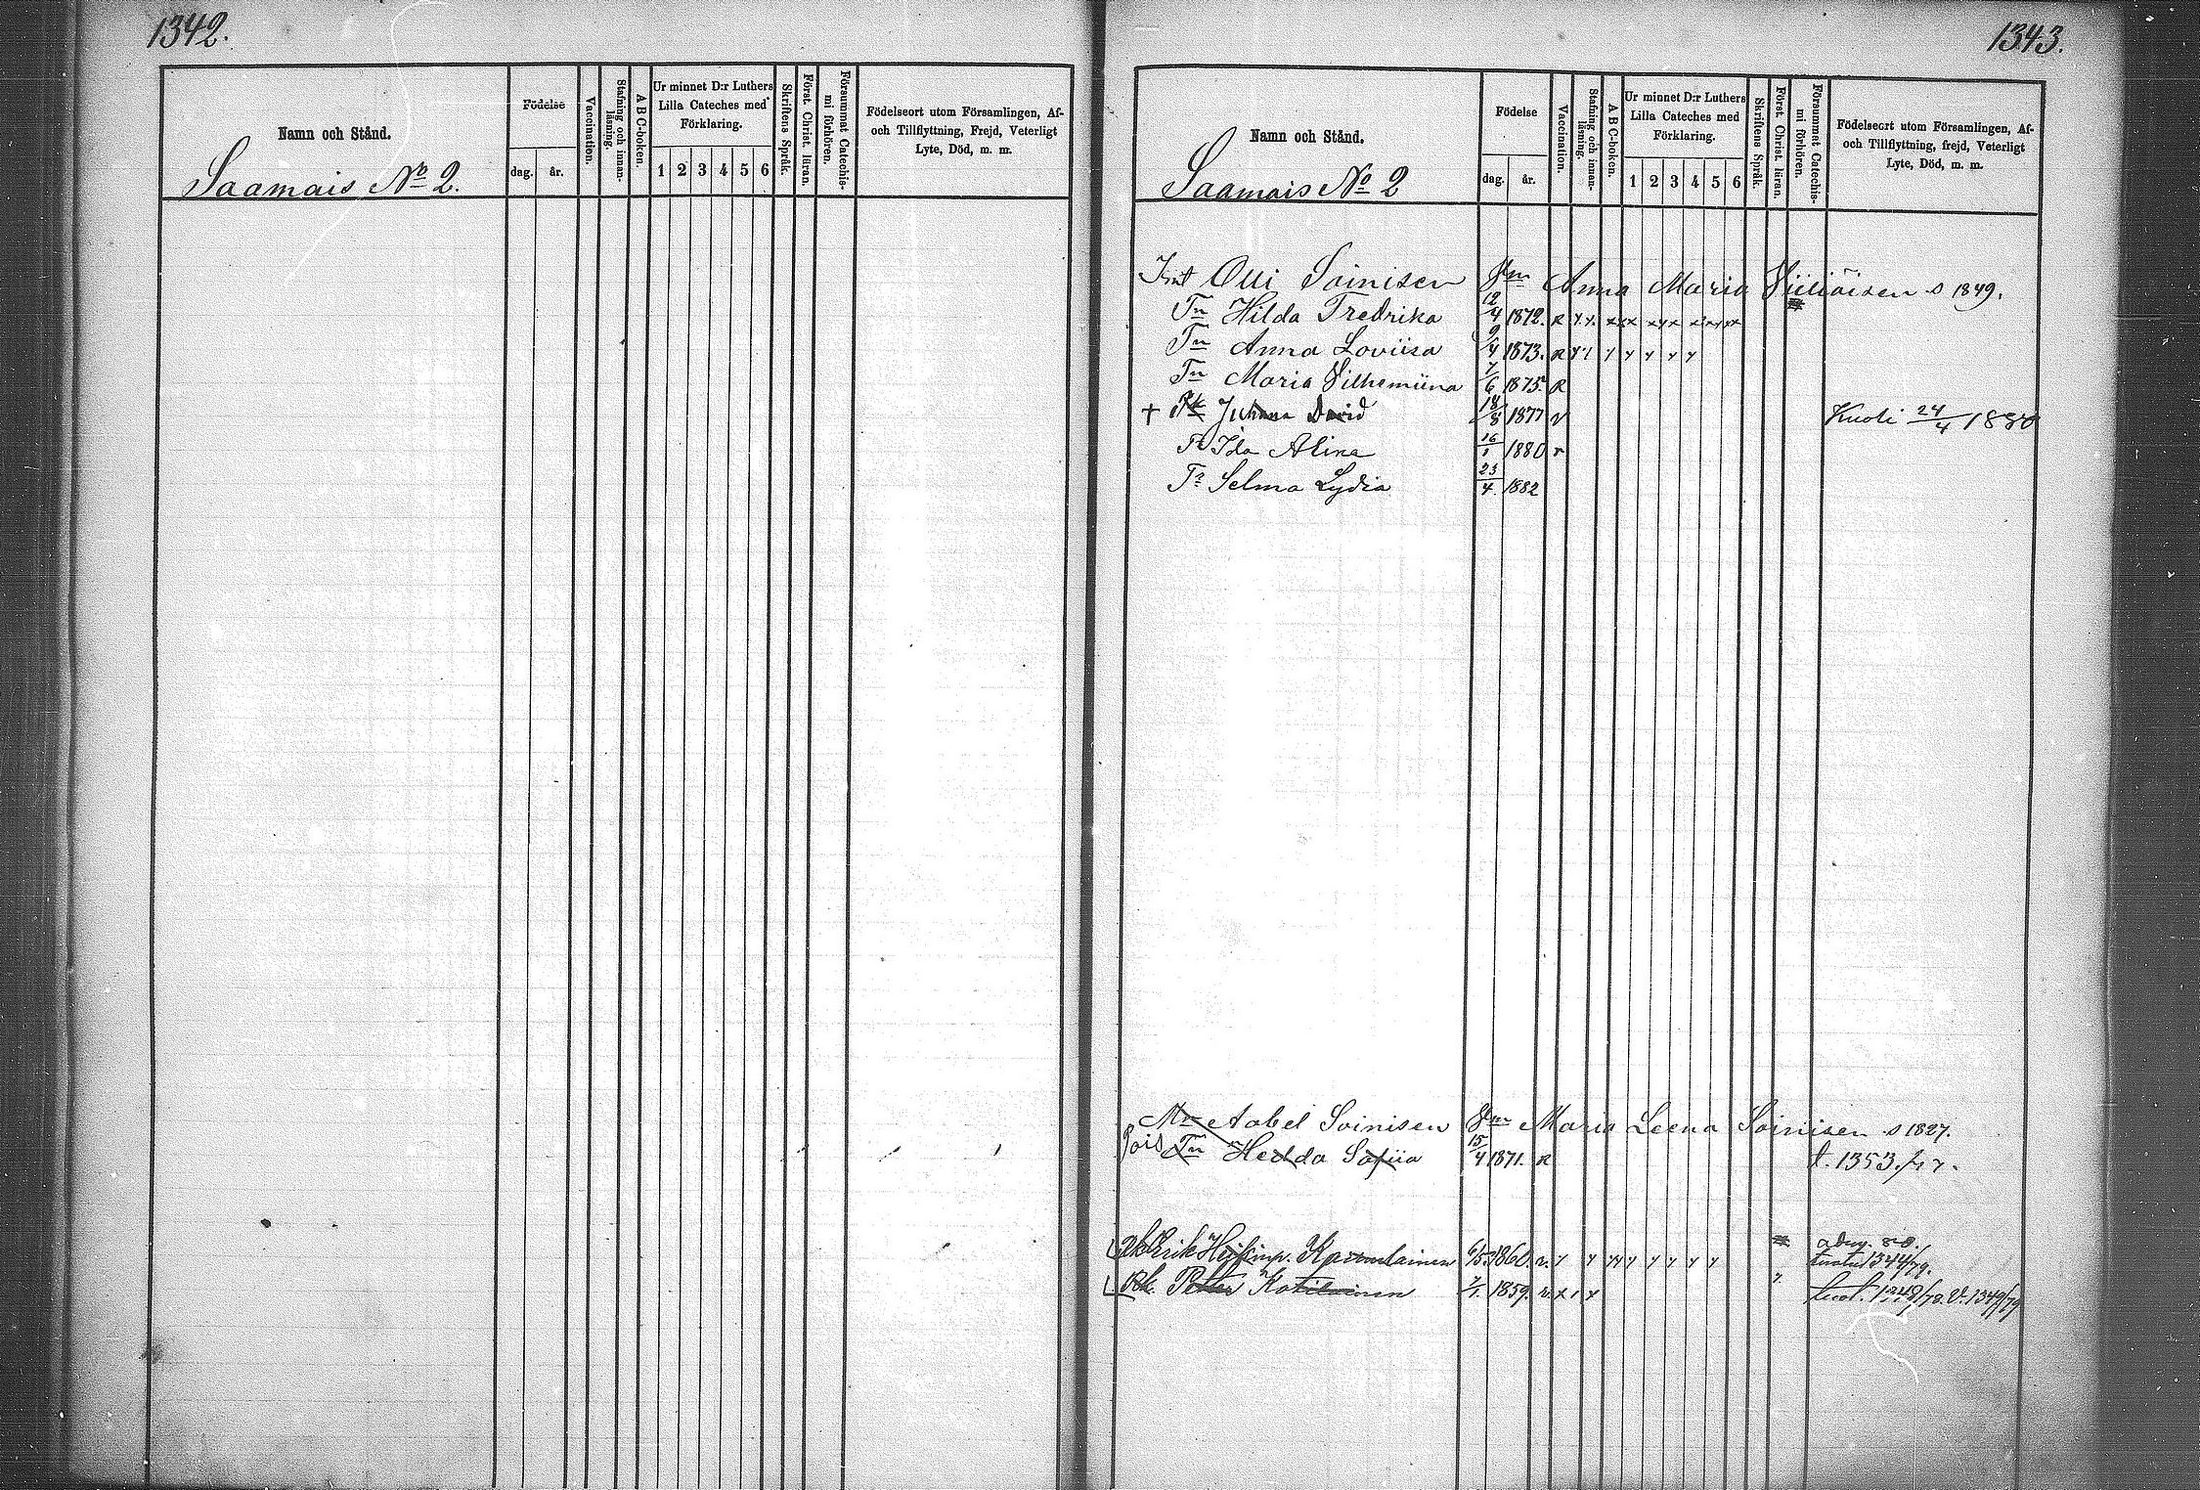 1342.
Namn och Stånd.
Saamais No 2.
Födelse
dag.
år.
Vaccination.
Stafning och innanläsning.
A B C-boken.
Ur minnet D:r Luthers
Lilla Cateches med
Förklaring.
1 2 3 4 5 6
Skriftens Språk.
Först. Christ. läran.
Försummat Catechismi förhören.
Födelseort utom Församlingen, Af-
och Tillflyttning, Frejd, Veterligt
Lyte, Död, m. m.
1343.
Namn och Stånd.
Saamais No 2
Födelse
dag.
år.
Vaccination.
Stafning och innanläsning.
A B C-boken.
Ur minnet D:r Luthers
Lilla Cateches med
Förklaring.
1 2 3 4 5 6
Skriftens Språk.
Först. Christ. läran.
Försummat Catechismi förhören.
Födelseort utom Församlingen, Af-
och Tillflyttning, frejd, Veterligt
Lyte, Död, m. m.
Olli Soinisen Anna Maria Hiiliäisen s 1849.
Tr Hilda Fredrika 12/4 1872. R
Tr Anna Loviisa 9/4 1873. R
Tr Maria Vilhemiina 7/6 1875. R
+ Pk Juhana David 18/8 1877 v Kuoli 24/4 1880
Tr Ida Alina 16/1 1880 r
Tr Selma Lydia 23/4 1882
Aabel Soinisen Maria Leena Soinisen s 1827.
Pois Tr Hedda Sofiia 15/4 1871. R t. 1353.
Erik Karvulainen 1860. v.
1344/79.
Rk. Petter Kotilainen 7/1. 1859. v. x 1 x 1349/79